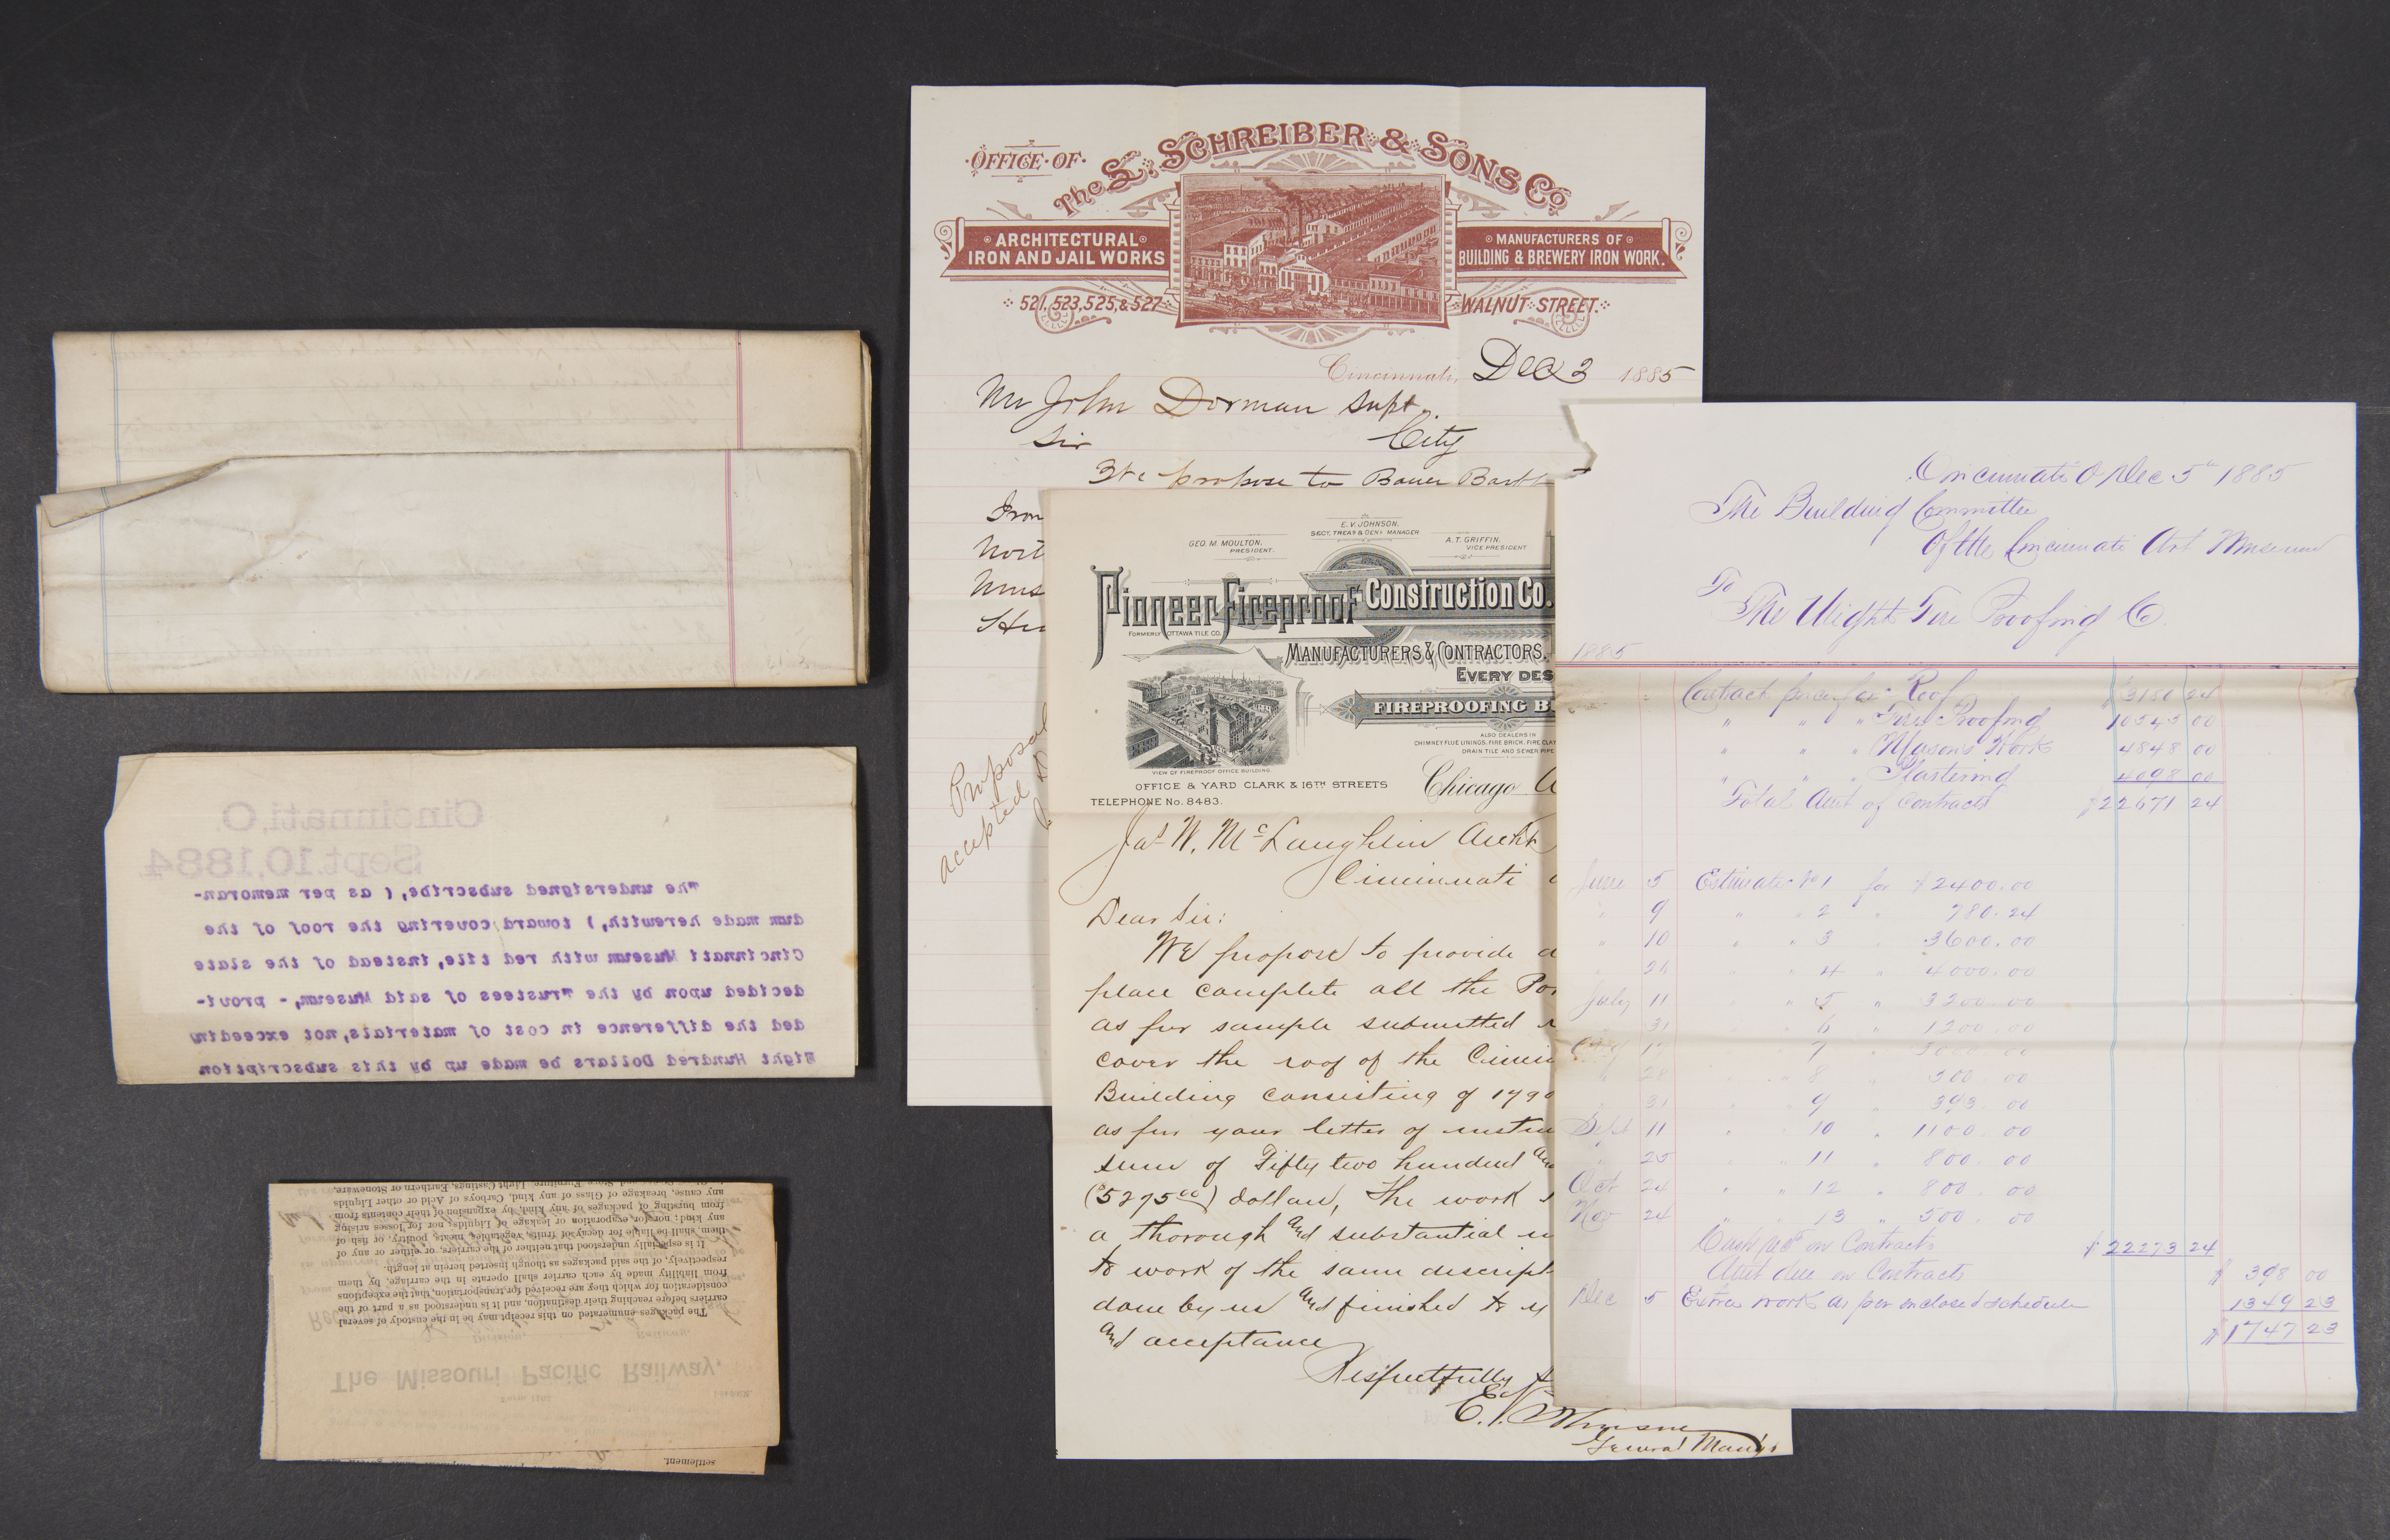 OFFICE OF
The L. SCHREIBER & SONS Co
ARCHITECTURAL
IRON AND JAIL WORKS
MANUFACTURERS OF
BUILDING & BREWERY IRON WORK.
521, 523, 525, & 527
WALNUT STREET.
Cincinnati, Dec 3 1885
Mr John Dorman Supt.
Sir City
We propose to Bauer
Iron
Proposal
accepted
GEO. M. MOULTON.
PRESIDENT.
E. V. JOHNSON.
SECY, TREAS & GENL MANAGER
A. T. GRIFFIN.
VICE PRESIDENT
Pioneer Fireproof Construction Co.
FORMERLY OTTAWA TILE CO.
MANUFACTURERS & CONTRACTORS.
EVERY DES
FIREPROOFING B
ALSO DEALERS IN
CHIMNEY FLUE LININGS. FIRE BRICK. FIRE CLAY
DRAIN TILE AND SEWER PIPE
VIEW OF FIREPROOF OFFICE BUILDING.
OFFICE & YARD CLARK & 16TH STREETS
TELEPHONE No. 8483.
Chicago
Jas W. McLaughlin Archt
Cincinnati
Dear Sir:
We propose to provide a
place complete all the
as per sample submitted
cover the roof of the
Building consisting of 1790
as per your letter of
sum of Fifty two hundred and
($5275 00) dollars, the work
a thorough and substantial
to work of the same descript
done by us and finished to
and acceptance
Respectfully
E. V. Johnson
General Manager
Cincinnati O Dec 5th 1885
The Building Committee
Of the Cincinnati Art Museum
To
The Wight Fire Proofing Co.
1885
Contract price for Roof $3180 24
" " " Fire Proofing 10545 00
" " " Mason's Work 4848 00
" " " Plastering 4098 00
Total Amt of Contracts $22671 24
June 5 Estimate No 1 for $2400.00
" 9 " " 2 " 780.24
" 10 " " 3 " 3600.00
" 26 " " 4 " 4000.00
July 11 " " 5 " 3200.00
" 31 " " 6 " 1200.00
7 " 00
" 28 " " 8 " 500.00
" 31 " " 9 " 393.00
Sept 11 " " 10 " 1100.00
" 25 " " 11 " 800.00
Oct 24 " " 12 " 800.00
Nov 24 " " 13 " 500.00
Cash on Contracts $22273 24
Amt due on Contracts $398 00
Dec 5 Extra work as per enclosed schedule 1349 23
$1747 23
Cincinnati, O.
Sept. 10, 1884
The undersigned subscribe, (as per memoran-
dum made herewith,) toward covering the roof of the
Cincinnati Museum with red tile, instead of the slate
decided upon by the Trustees of said Museum, - provi-
ded the difference in cost of materials, not exceeding
Eight Hundred Dollars be made up by this subscription
The Missouri Pacific Railway,
The packages enumerated on this receipt may be in the custody of several
carriers before reaching their destination, and it is understood as a part of the
consideration for which they are received for transportation, that the exceptions
from liability made by each carrier shall operate in the carriage, by them
respectively, of the said packages as though inserted herein at length.
It is especially understood that neither of the carriers, or either or any of
them, shall be liable for decay of fruits, vegetables, meats, poultry, or fish of
any kind; nor for evaporation or leakage of Liquids; nor for losses arising
from bursting of packages of any kind, by expansion of their contents from
any cause, breakage of Glass of any kind, Carboys of Acid or other Liquids
Furniture, Light Castings, Earthern or Stoneware,
settlement.